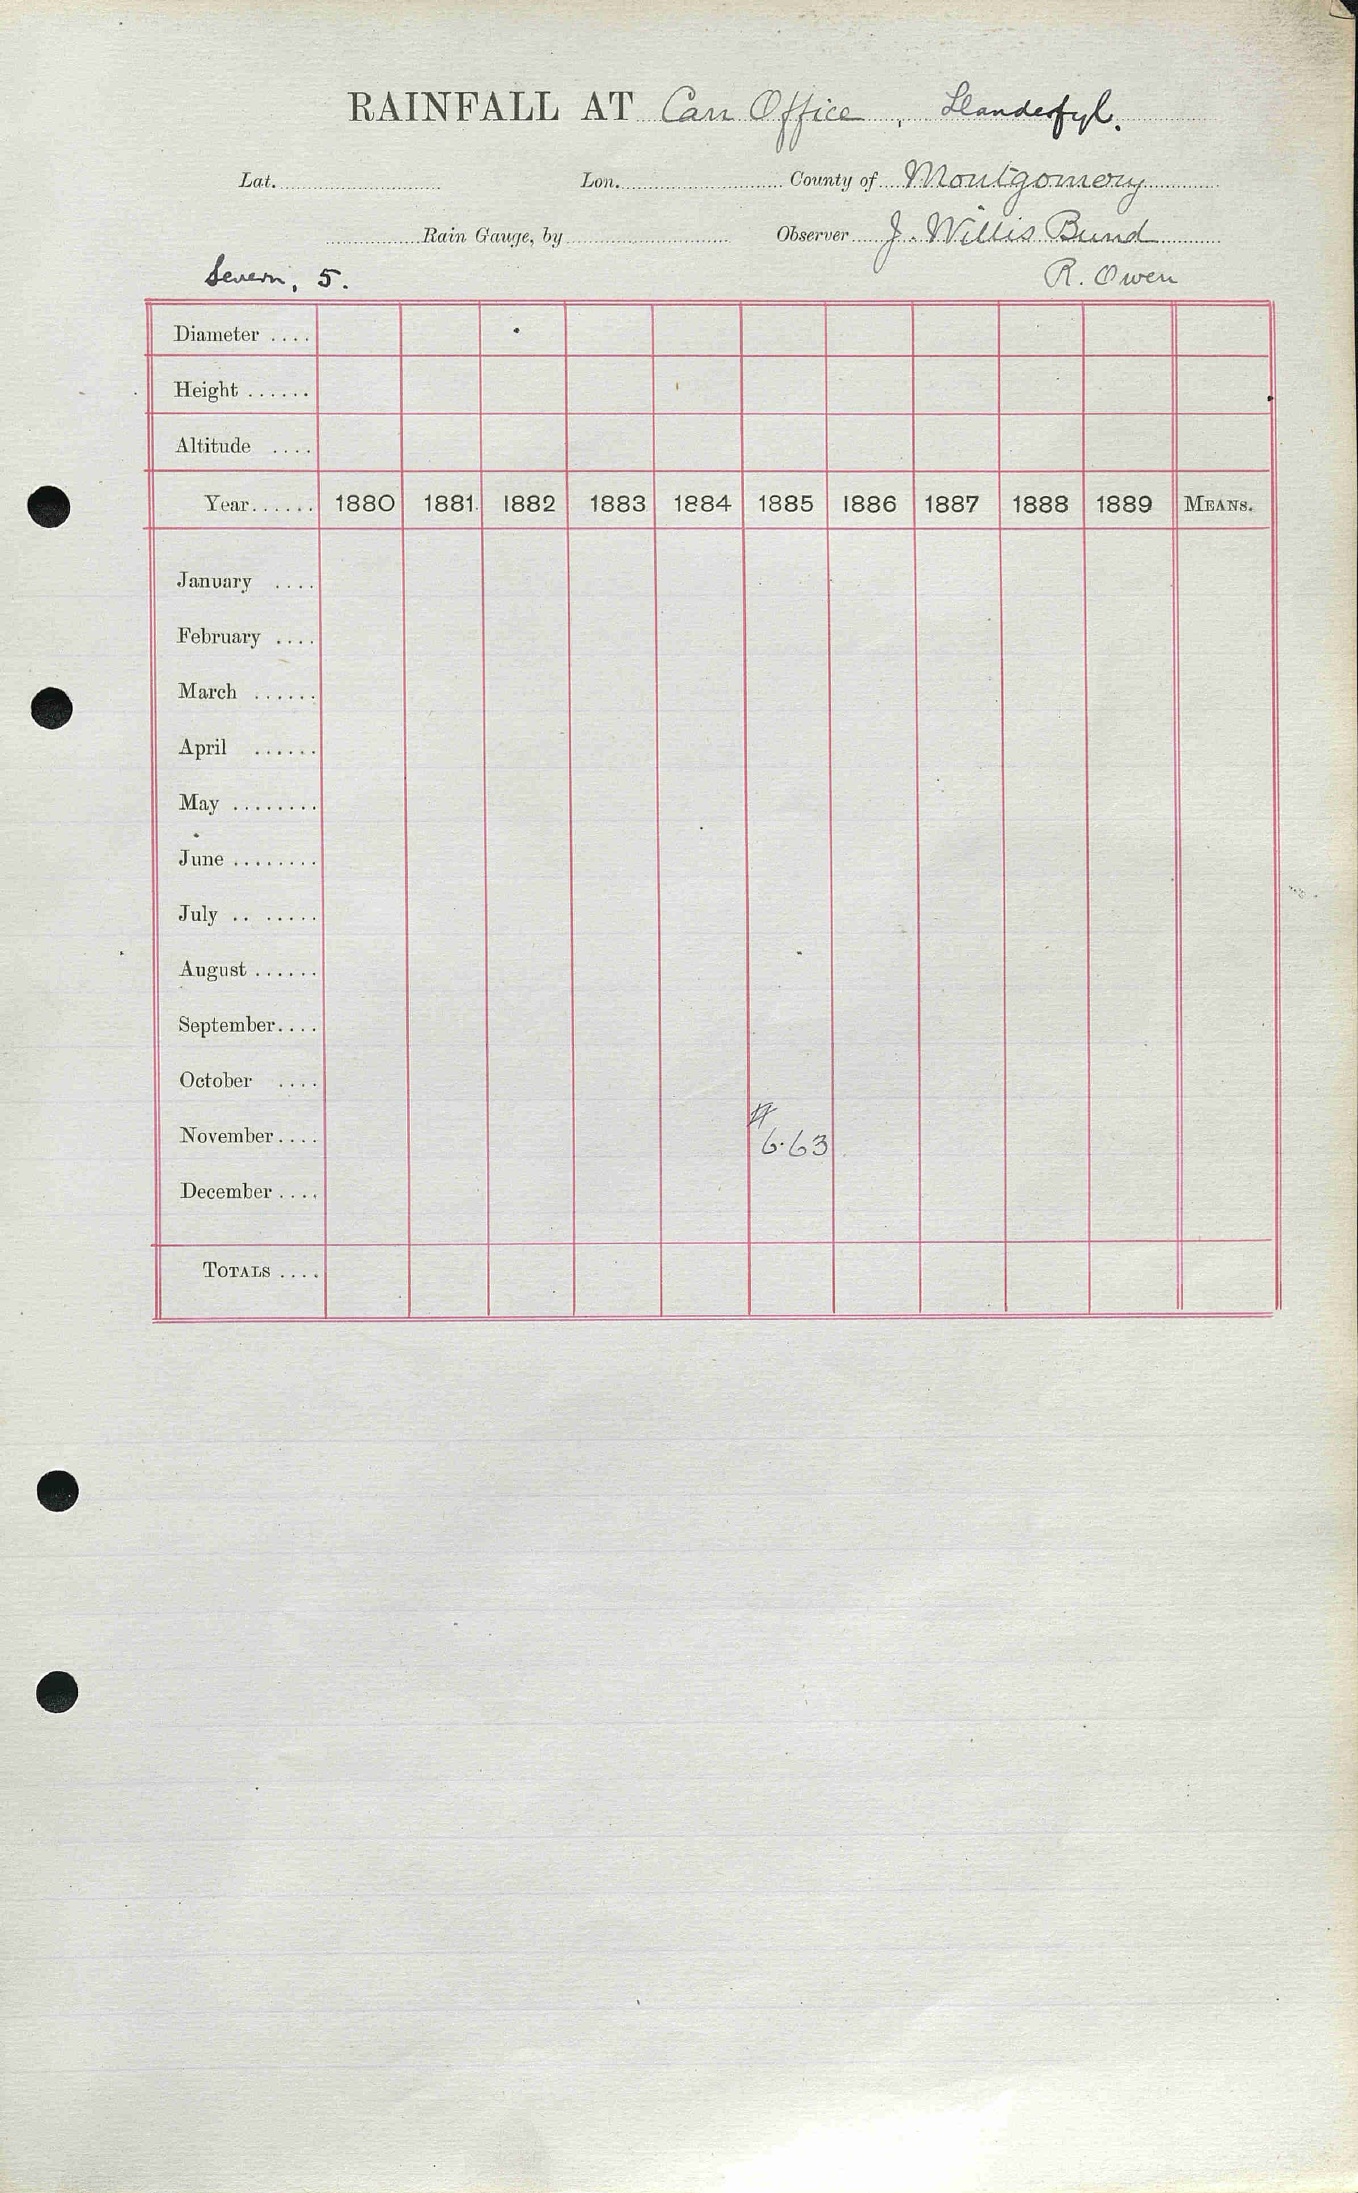 RAINFALL AT Can Office, Llanderfyl.
Lat. Lon. County of Montgomery
Rain Gauge, by Observer J. Willis Bund
Severn, 5. R. Owen
Diameter ....
Height ......
Altitude ....
Year...... 1880 1881 1882 1883 1884 1885 1886 1887 1888 1889 MEANS.
January ....
February ....
March ......
April ......
May ........
June ........
July .. .....
August ......
September....
October ....
#
November.... 6.63
December ....
TOTALS ....